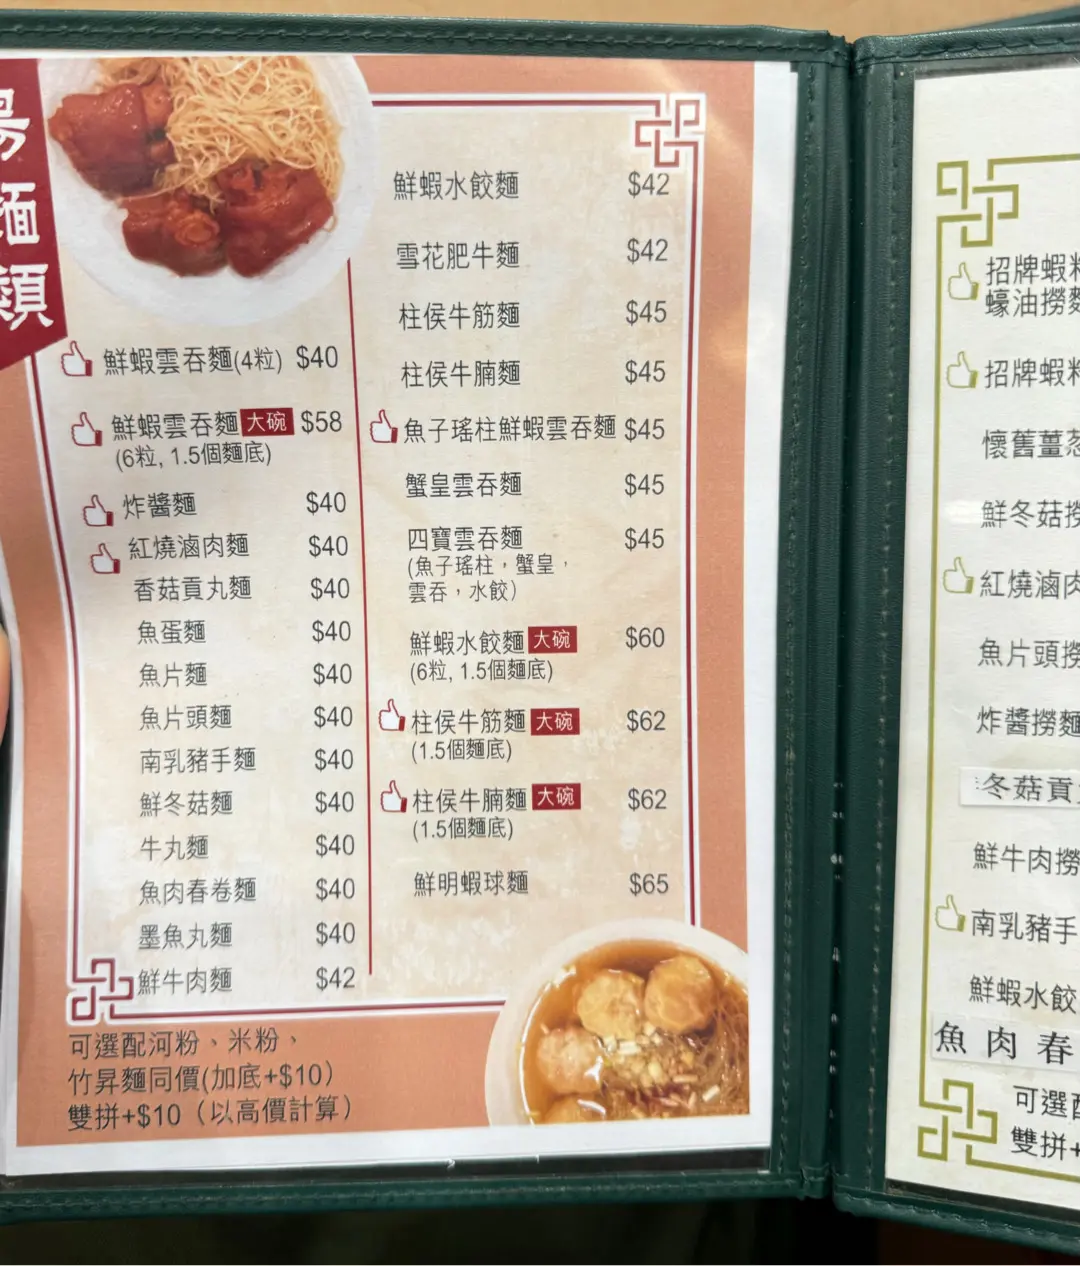 湯麵類
鮮蝦雲吞麵(4粒) $40
鮮蝦雲吞麵 大碗 $58
(6粒, 1.5個麵底)
炸醬麵 $40
紅燒滷肉麵 $40
香菇貢丸麵 $40
魚蛋麵 $40
魚片麵 $40
魚片頭麵 $40
南乳豬手麵 $40
鮮冬菇麵 $40
牛丸麵 $40
魚肉春卷麵 $40
墨魚丸麵 $40
鮮牛肉麵 $42
鮮蝦水餃麵 $42
雪花肥牛麵 $42
柱侯牛筋麵 $45
柱侯牛腩麵 $45
魚子瑤柱鮮蝦雲吞麵 $45
蟹皇雲吞麵 $45
四寶雲吞麵 $45
(魚子瑤柱，蟹皇，
雲吞，水餃)
鮮蝦水餃麵 大碗 $60
(6粒, 1.5個麵底)
柱侯牛筋麵 大碗 $62
(1.5個麵底)
柱侯牛腩麵 大碗 $62
(1.5個麵底)
鮮明蝦球麵 $65
可選配河粉、米粉、
竹昇麵同價(加底+$10)
雙拼+$10（以高價計算）
招牌蝦
蠔油撈麵
招牌蝦
懷舊薑蔥
鮮冬菇撈
紅燒滷肉
魚片頭撈
炸醬撈麵
冬菇貢
鮮牛肉撈
南乳豬手
鮮蝦水餃
魚肉春
可選配
雙拼+